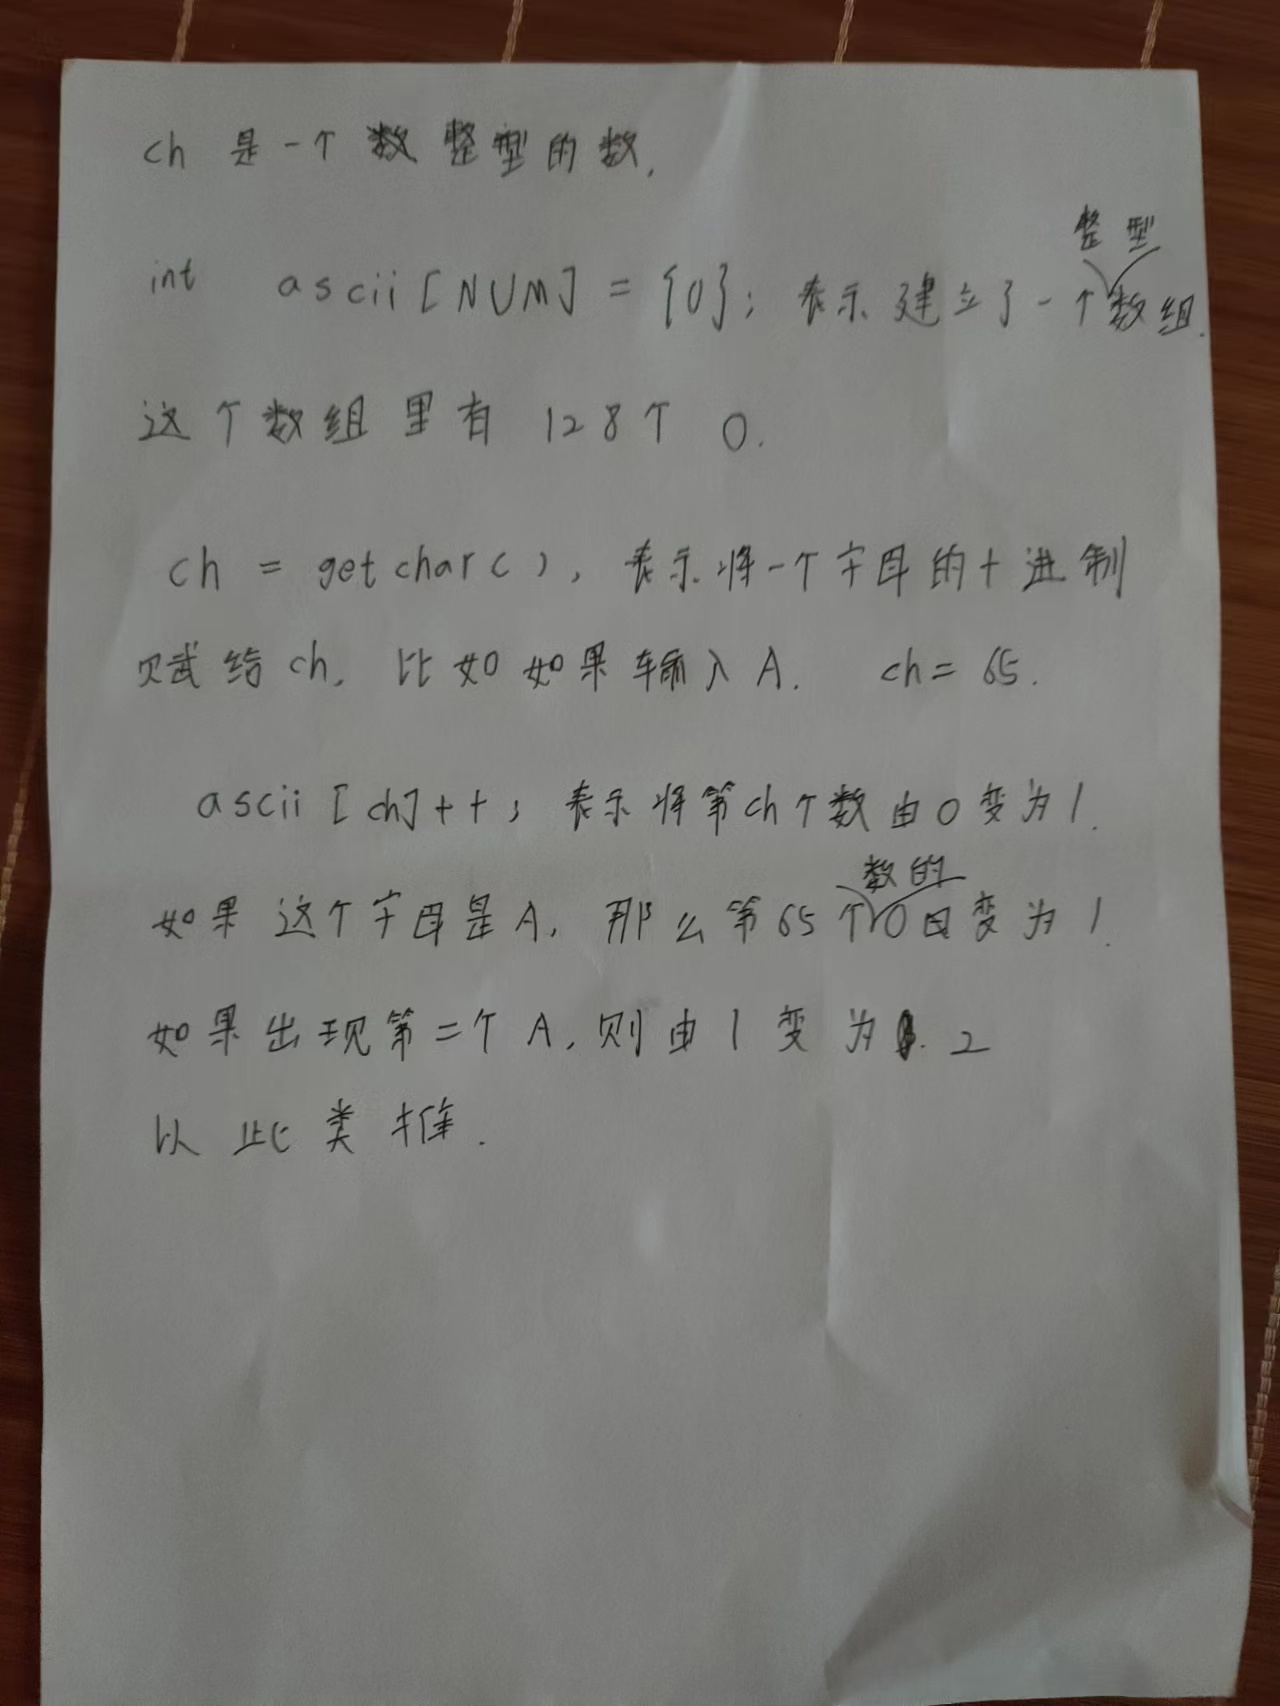 ch 是一个数整型的数.
整型
int ascii[NUM] = {0}; 表示建立了一个数组.
这个数组里有 128个 0.
ch = getchar(), 表示将一个字母的十进制
赋给 ch. 比如如果输入 A. ch = 65.
ascii[ch]++; 表示将第ch个数由0变为1.
数的
如果这个字母是A, 那么第65个0由变为1.
如果出现第二个A, 则由1变为. 2
以此类推.